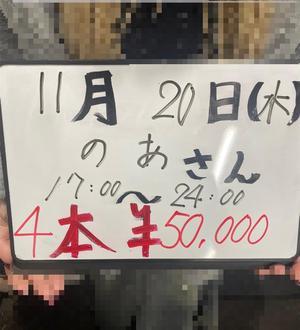 11月 20日(水)
のあさん
17:00〜24:00
4本 ¥50,000